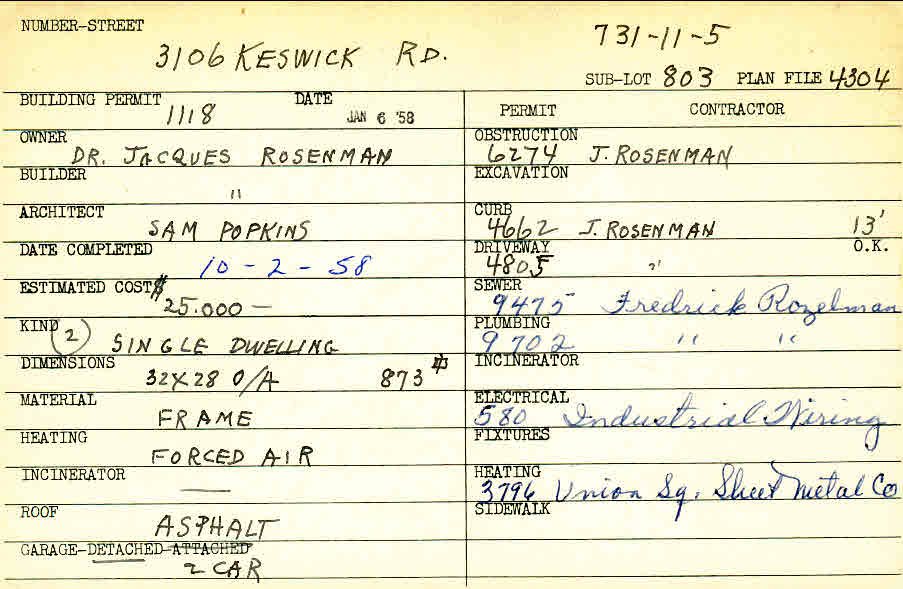 NUMBER-STREET
3106 KESWICK RD.
731-11-5
SUB-LOT 803 PLAN FILE 4304
BUILDING PERMIT DATE
1118 JAN 6 '58
PERMIT CONTRACTOR
OWNER
DR. JACQUES ROSENMAN
OBSTRUCTION
6274 J. ROSENMAN
BUILDER
"
EXCAVATION
ARCHITECT
SAM POPKINS
CURB
4662 J. ROSENMAN 13'
DATE COMPLETED
10-2-58
DRIVEWAY O.K.
4805 "
ESTIMATED COST $
25.000 —
SEWER
9475 Fredrick Rozelman
KIND
(2) SINGLE DWELLING
PLUMBING
9702 " "
DIMENSIONS
32X28 O/A 873
INCINERATOR
MATERIAL
FRAME
ELECTRICAL
580 Industrial Wiring
HEATING
FORCED AIR
FIXTURES
INCINERATOR
—
HEATING
3796 Union Sq. Sheet Metal Co
ROOF
ASPHALT
SIDEWALK
GARAGE-DETACHED-ATTACHED
2 CAR